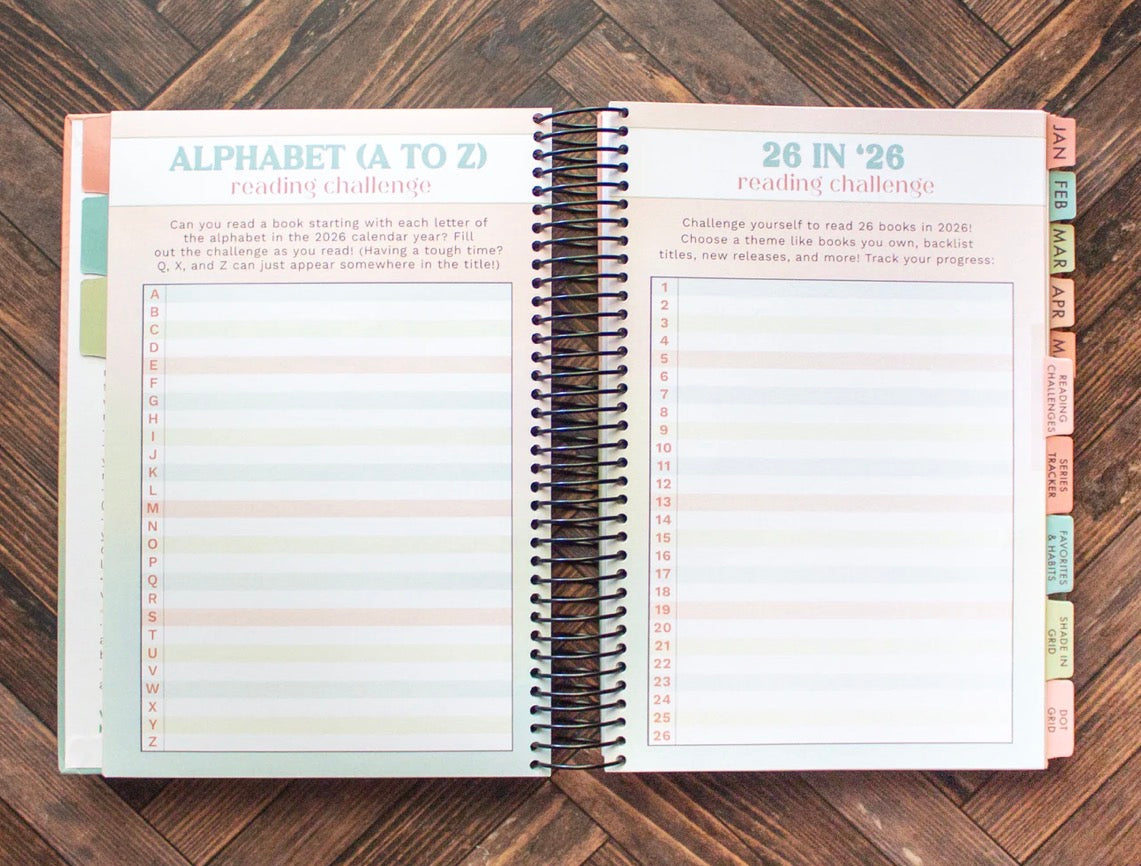 ALPHABET (A TO Z)
reading challenge
Can you read a book starting with each letter of
the alphabet in the 2026 calendar year? Fill
out the challenge as you read! (Having a tough time?
Q, X, and Z can just appear somewhere in the title!)
A
B
C
D
E
F
G
H
I
J
K
L
M
N
O
P
Q
R
S
T
U
V
W
X
Y
Z
26 IN ‘26
reading challenge
Challenge yourself to read 26 books in 2026!
Choose a theme like books you own, backlist
titles, new releases, and more! Track your progress:
1
2
3
4
5
6
7
8
9
10
11
12
13
14
15
16
17
18
19
20
21
22
23
24
25
26
JAN
FEB
MAR
APR
READING
CHALLENGES
SERIES
TRACKER
FAVORITES
& HABITS
SHADE IN
GRID
DOT
GRID